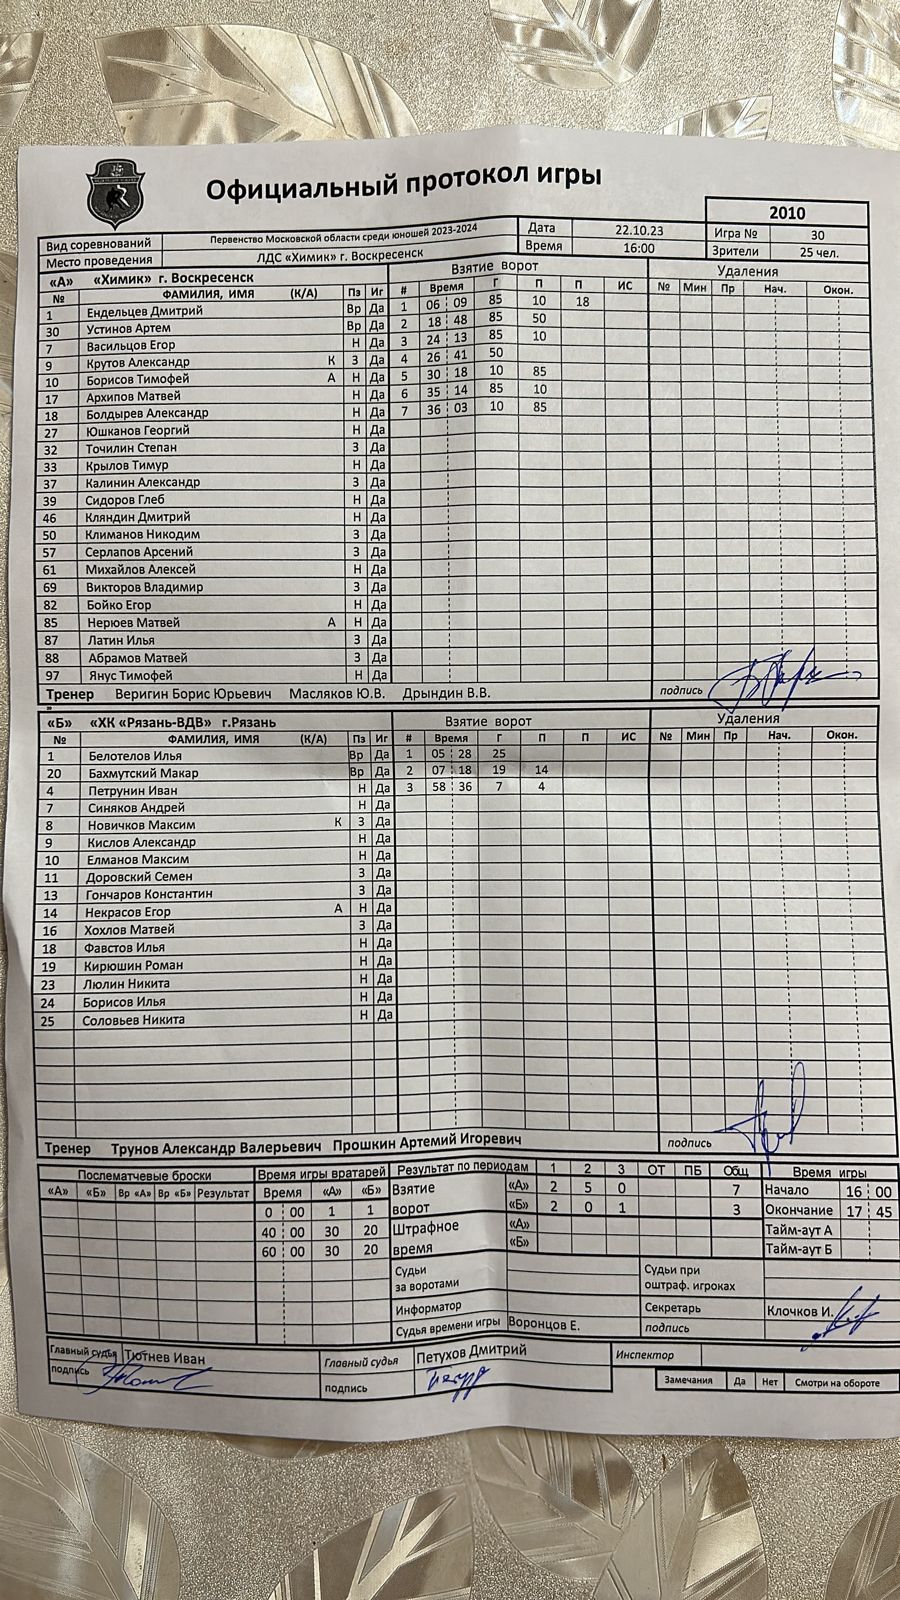 Официальный протокол игры
2010
Вид соревнований Первенство Московской области среди юношей 2023-2024 Дата 22.10.23 Игра № 30
Место проведения ЛДС «Химик» г. Воскресенск Время 16:00 Зрители 25 чел.
«А» «Химик» г. Воскресенск Взятие ворот Удаления
№ ФАМИЛИЯ, ИМЯ (К/А) Пз Иг # Время Г П П ИС № Мин Пр Нач. Окон.
1 Ендельцев Дмитрий Вр Да 1 06 09 85 10 18
30 Устинов Артем Вр Да 2 18 48 85 50
7 Васильцов Егор Н Да 3 24 13 85 10
9 Крутов Александр К З Да 4 26 41 50
10 Борисов Тимофей А Н Да 5 30 18 10 85
17 Архипов Матвей Н Да 6 35 14 85 10
18 Болдырев Александр Н Да 7 36 03 10 85
27 Юшканов Георгий Н Да
32 Точилин Степан З Да
33 Крылов Тимур Н Да
37 Калинин Александр З Да
39 Сидоров Глеб Н Да
46 Кляндин Дмитрий Н Да
50 Климанов Никодим З Да
57 Серлапов Арсений З Да
61 Михайлов Алексей Н Да
69 Викторов Владимир З Да
82 Бойко Егор Н Да
85 Нерюев Матвей А Н Да
87 Латин Илья З Да
88 Абрамов Матвей З Да
97 Янус Тимофей Н Да
Тренер Веригин Борис Юрьевич Масляков Ю.В. Дрындин В.В. подпись
«Б» «ХК «Рязань-ВДВ» г.Рязань Взятие ворот Удаления
№ ФАМИЛИЯ, ИМЯ (К/А) Пз Иг # Время Г П П ИС № Мин Пр Нач. Окон.
1 Белотелов Илья Вр Да 1 05 28 25
20 Бахмутский Макар Вр Да 2 07 18 19 14
4 Петрунин Иван Н Да 3 58 36 7 4
7 Синяков Андрей Н Да
8 Новичков Максим К З Да
9 Кислов Александр Н Да
10 Елманов Максим Н Да
11 Доровский Семен З Да
13 Гончаров Константин З Да
14 Некрасов Егор А Н Да
16 Хохлов Матвей З Да
18 Фавстов Илья Н Да
19 Кирюшин Роман Н Да
23 Люлин Никита Н Да
24 Борисов Илья Н Да
25 Соловьев Никита Н Да
Тренер Трунов Александр Валерьевич Прошкин Артемий Игоревич подпись
Послематчевые броски Время игры вратарей Результат по периодам 1 2 3 ОТ ПБ Общ Время игры
«А» «Б» Вр «А» Вр «Б» Результат Время «А» «Б» Взятие «А» 2 5 0 7 Начало 16 00
0 00 1 1 ворот «Б» 2 0 1 3 Окончание 17 45
40 00 30 20 Штрафное «А» Тайм-аут А
60 00 30 20 время «Б» Тайм-аут Б
Судьи за воротами Судьи при оштраф. игроках
Информатор Секретарь Клочков И.
Судья времени игры Воронцов Е. подпись
Главный судья Тютнев Иван Главный судья Петухов Дмитрий Инспектор
подпись подпись Замечания Да Нет Смотри на обороте